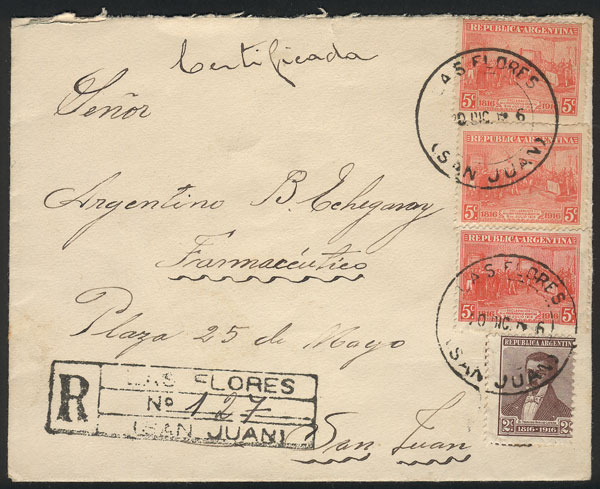 Certificada
Señor
Argentino B. Echegaray
Farmacéutico
Plaza 25 de Mayo
San Juan
R
LAS FLORES
Nº 127
(SAN JUAN)
REPUBLICA ARGENTINA
5c 1816 1916 5c
REPUBLICA ARGENTINA
5c 1816 1916 5c
REPUBLICA ARGENTINA
5c 5c
REPUBLICA ARGENTINA
2c 1816-1916 2c
LAS FLORES
20 DIC 6
(SAN JUAN)
LAS FLORES
DIC 6
(SAN JUAN)